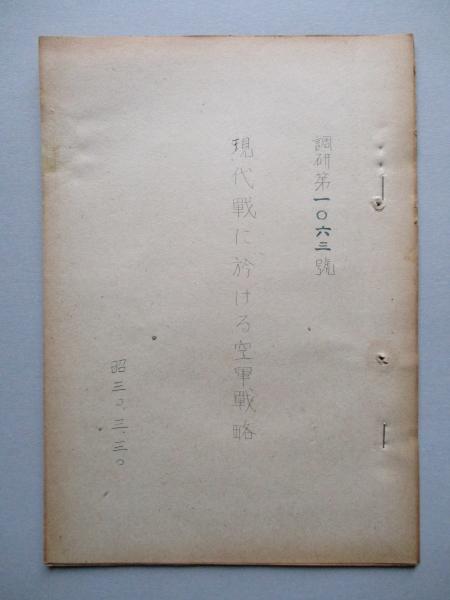 調研第一〇六三號
現代戰に於ける空軍戰略
昭三〇、三、三〇